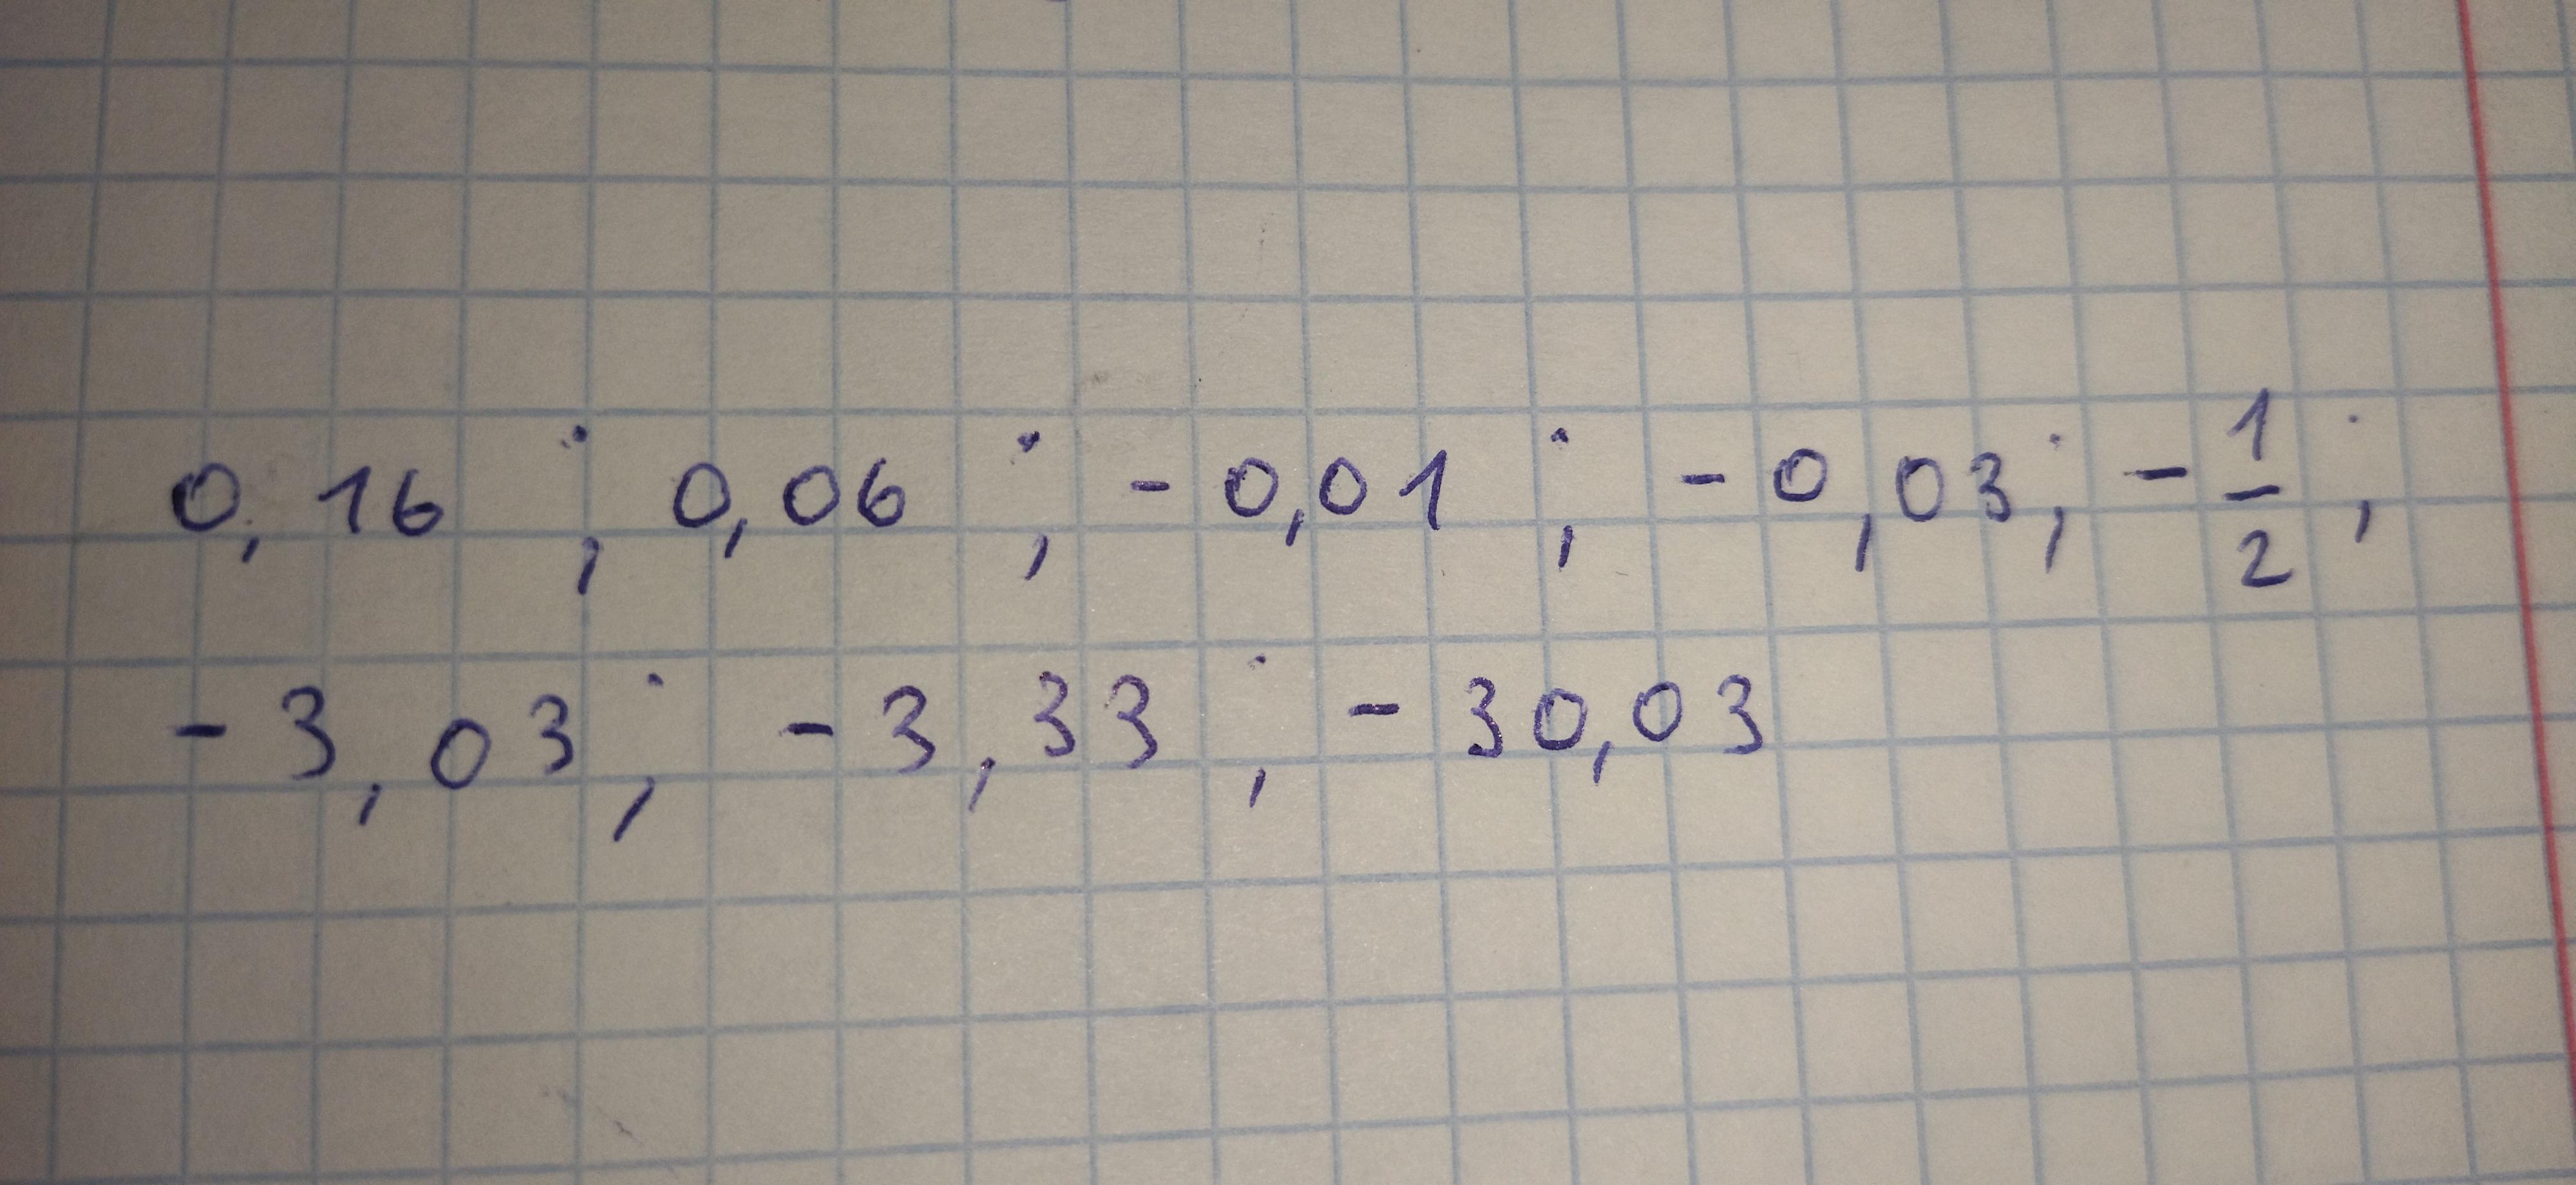 0,16 ; 0,06 ; -0,01 ; -0,03; -1/2 ;
-3,03; -3,33 ; -30,03